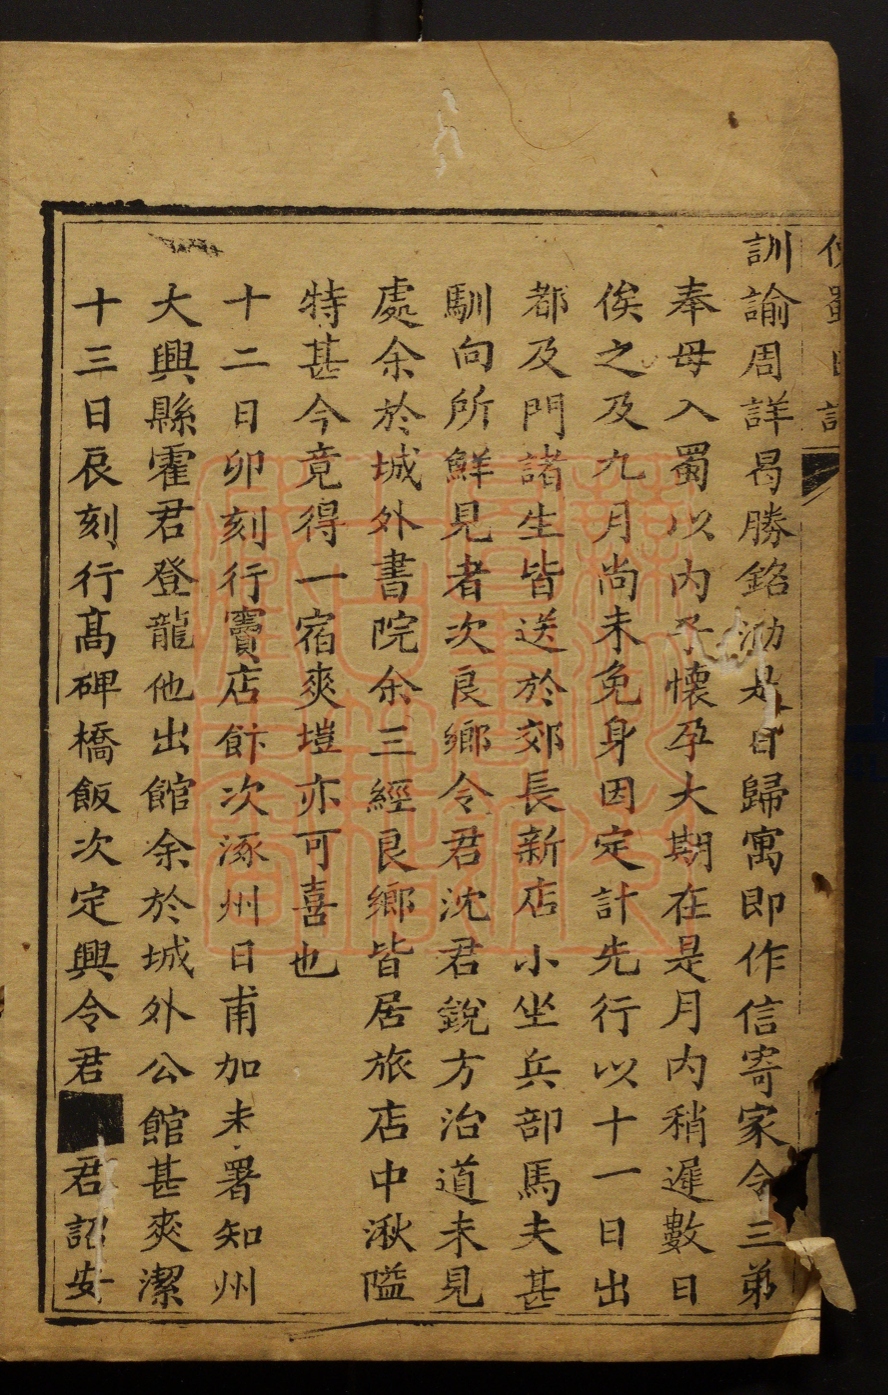 使蜀日記
訓諭周詳曷勝銘泐是日歸寓即作信寄家令三弟
奉母入蜀以内子懷孕大期在是月内稍遲數日
俟之及九月尚未免身因定計先行以十一日出
都及門諸生皆送於郊長新店小坐兵部馬夫甚
馴向所鮮見者次良鄉令君沈君銳方治道未見
處余於城外書院余三經良鄉皆居旅店中湫隘
特甚今竟得一宿爽塏亦可喜也
十二日卯刻行竇店飰次涿州日甫加未署知州
大興縣霍君登龍他出館余於城外公館甚爽潔
十三日辰刻行高碑橋飯次定興令君■君詔安